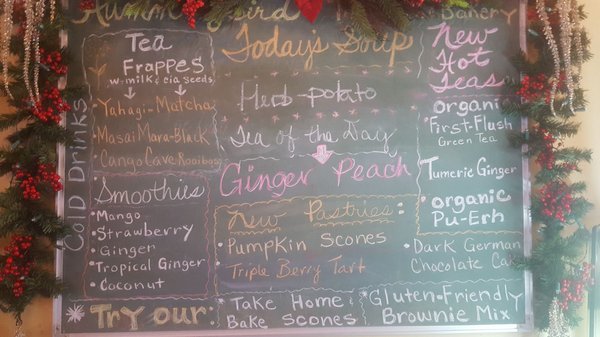 Bakery
Today's Soup
Herb potato
Tea of the Day
Ginger Peach
Cold Drinks
Tea
Frappes
w. milk & cia seeds
Yahagi-Matcha
Masai Mara-Black
Cango Cave Rooibos
Smoothies
• Mango
• Strawberry
• Ginger
• Tropical Ginger
• Coconut
New Pastries:
• Pumpkin Scones
Triple Berry Tart
• Dark German
Chocolate Cake
New
Hot
Teas
organic
• First-Flush
Green Tea
Tumeric Ginger
• organic
Pu-Erh
* Try our:
• Take Home &
Bake Scones
* Gluten-Friendly
Brownie Mix